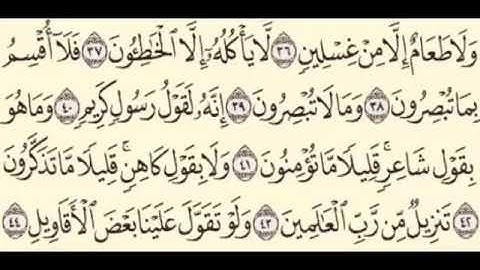 وَلَا طَعَامٌ إِلَّا مِنْ غِسْلِينٍ ٣٦ لَّا يَأْكُلُهُۥٓ إِلَّا ٱلْخَٰطِـُٔونَ ٣٧ فَلَآ أُقْسِمُ
بِمَا تُبْصِرُونَ ٣٨ وَمَا لَا تُبْصِرُونَ ٣٩ إِنَّهُۥ لَقَوْلُ رَسُولٍ كَرِيمٍ ٤٠ وَمَا هُوَ
بِقَوْلِ شَاعِرٍ ۚ قَلِيلًا مَّا تُؤْمِنُونَ ٤١ وَلَا بِقَوْلِ كَاهِنٍ ۚ قَلِيلًا مَّا تَذَكَّرُونَ
٤٢ تَنزِيلٌ مِّن رَّبِّ ٱلْعَٰلَمِينَ ٤٣ وَلَوْ تَقَوَّلَ عَلَيْنَا بَعْضَ ٱلْأَقَاوِيلِ ٤٤